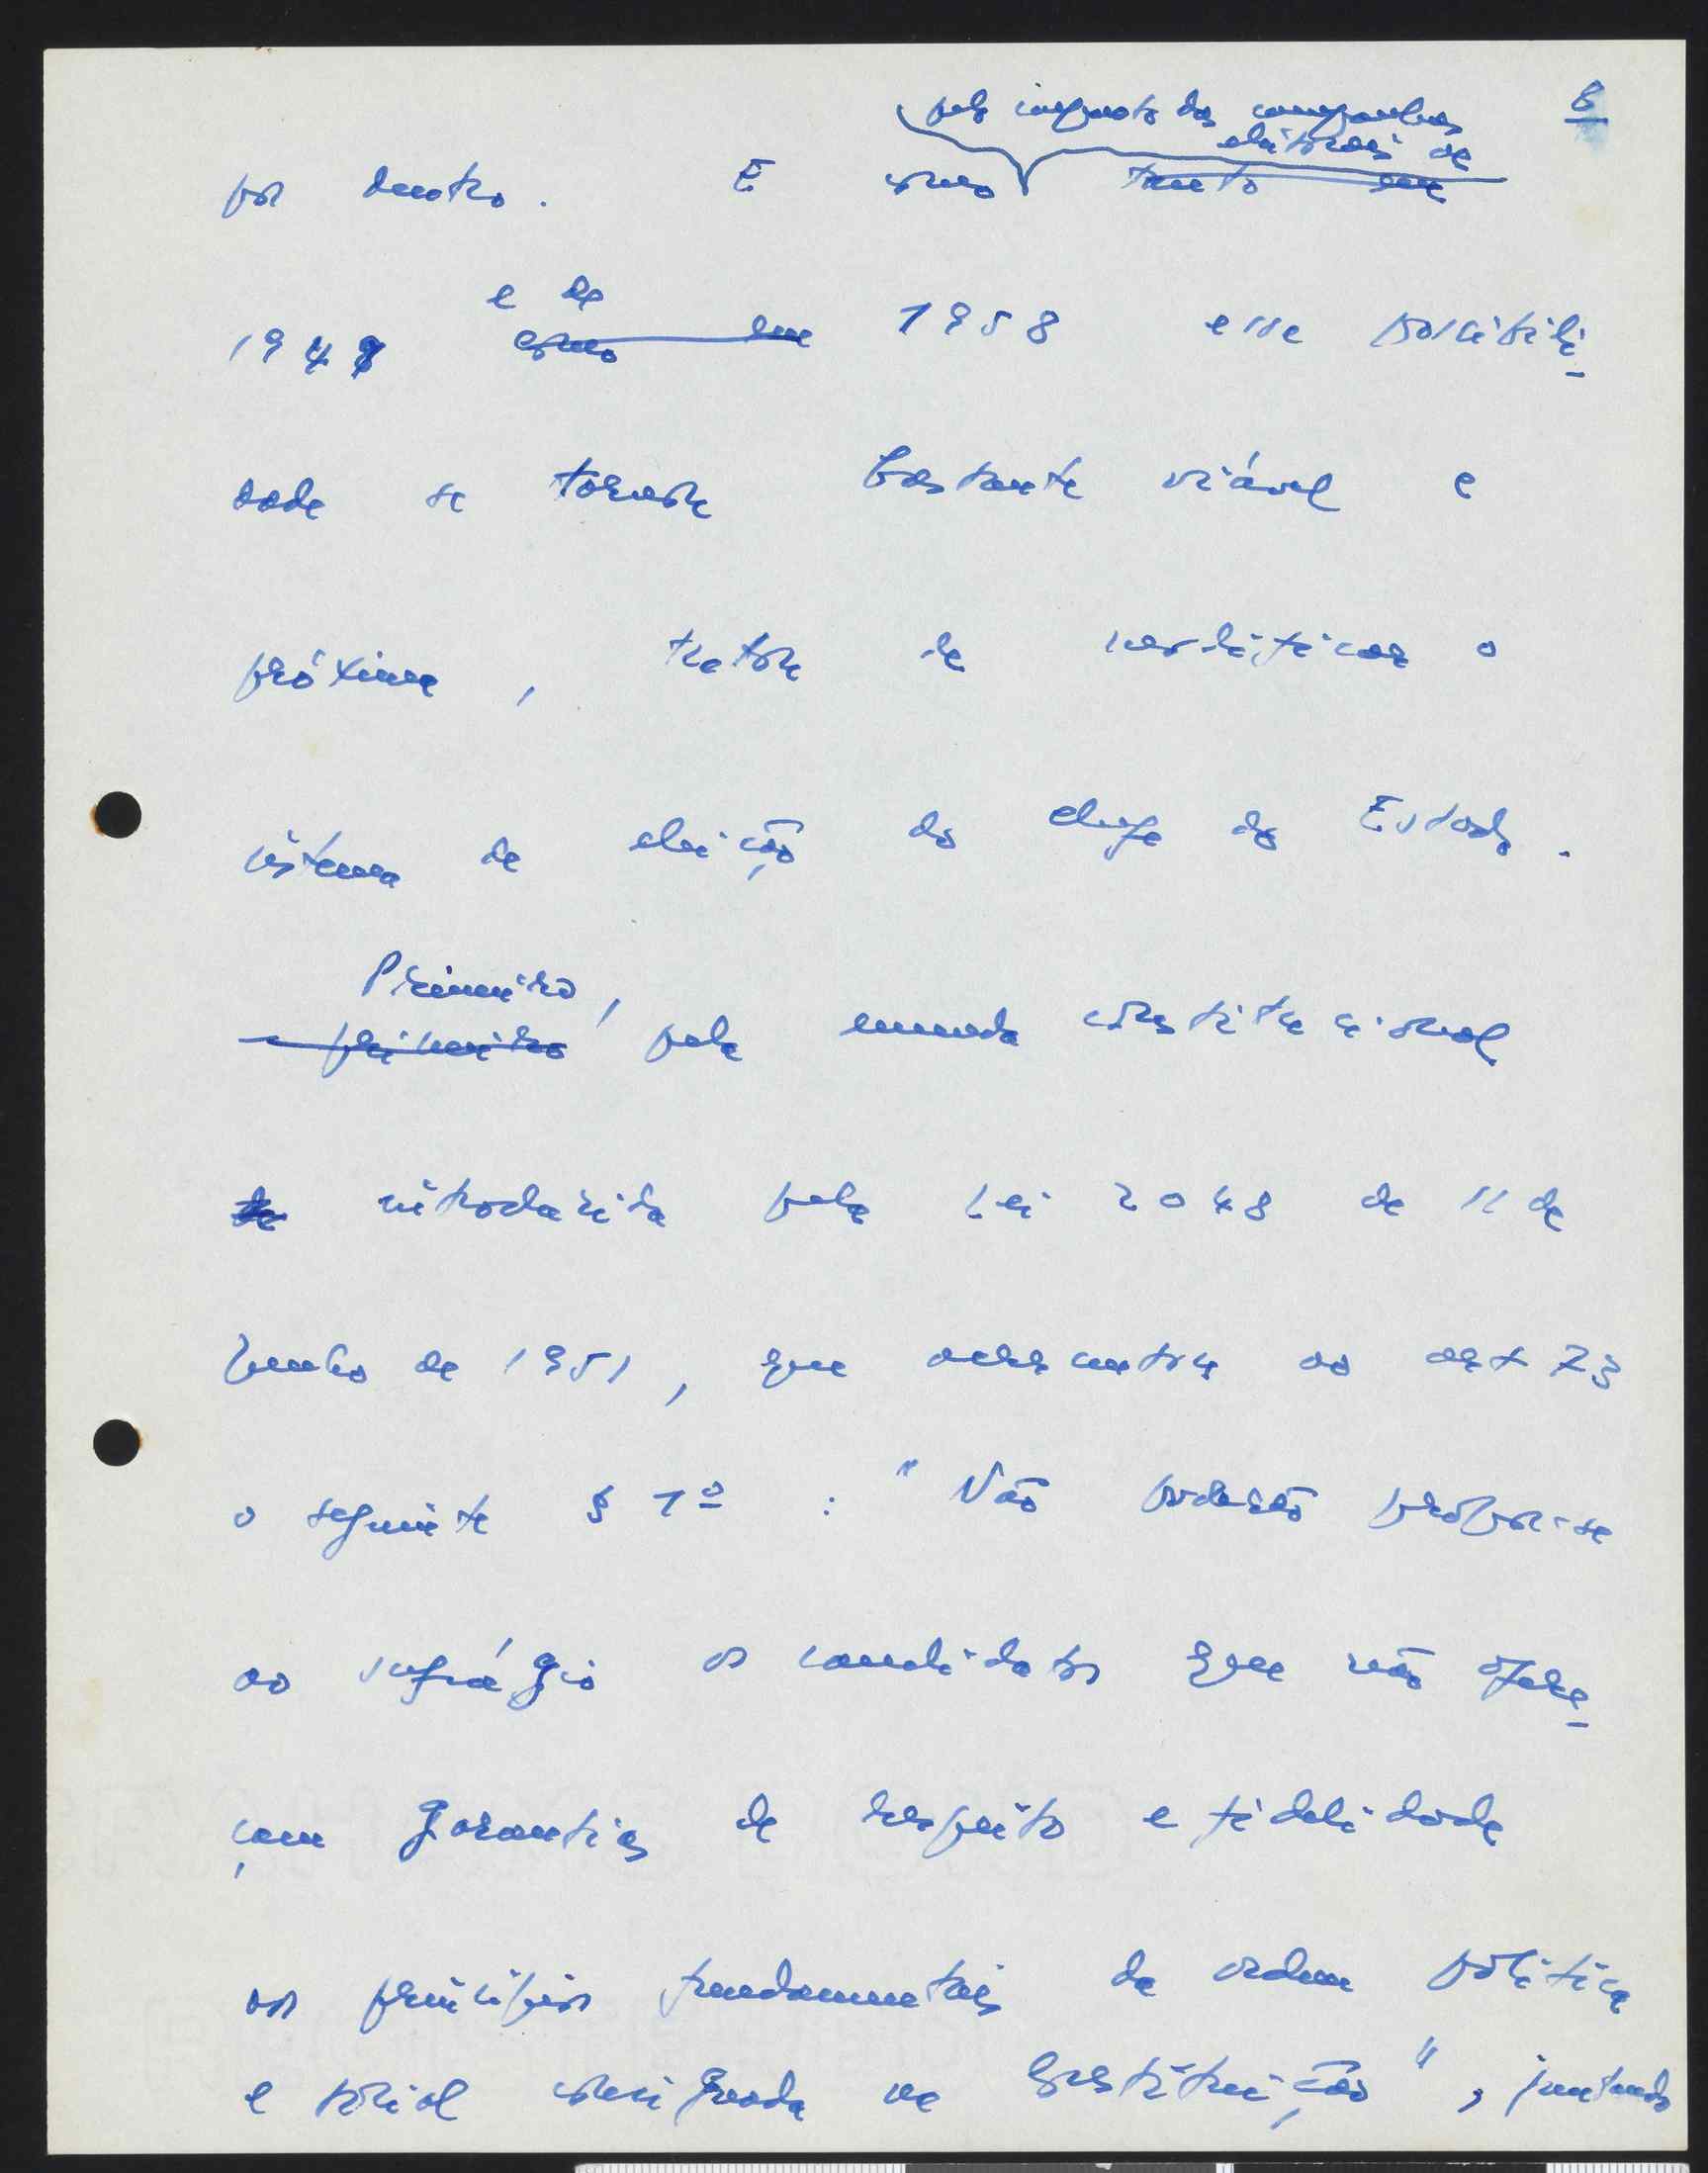 8
pelo impacto das campanhas
eleitorais de
por dentro. E como tanto em
e de
1949 como em 1958 essa possibili-
dade se tornou bastante viável e
próxima, tratou de modificar o
sistema de eleição do chefe do Estado.
Primeiro,
primeiro pela emenda constitucional
de introduzida pela Lei 2048 de 11 de
Junho de 1951, que acrescentou ao art 73
o seguinte § 1º : "Não poderão propor-se
ao sufrágio os candidatos que não ofere-
çam garantias de respeito e fidelidade
aos princípios fundamentais da ordem política
e social consignada na Constituição", juntando